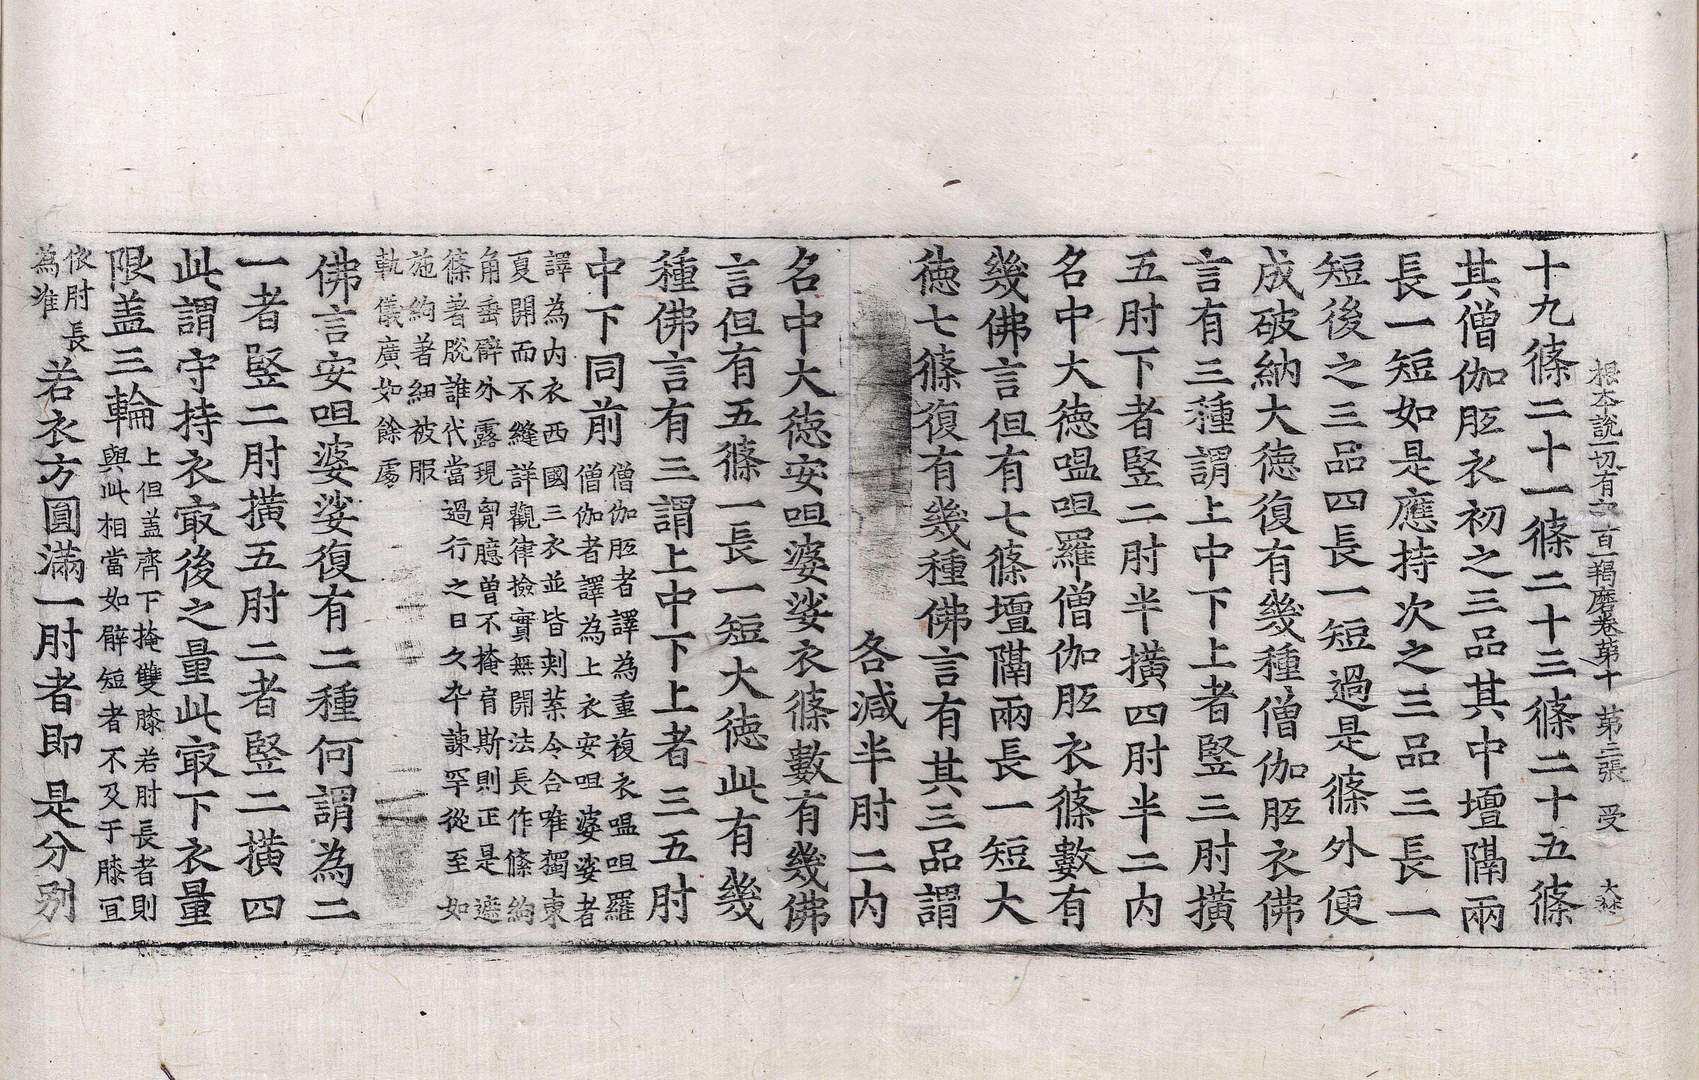 根本說一切有部百一羯磨卷第十 苐三張 受 大林
十九條二十一條二十三條二十五條
其僧伽胝衣初之三品其中壇隔兩
長一短如是應持次之三品三長一
短後之三品四長一短過是條外便
成破納大德復有幾種僧伽胝衣佛
言有三種謂上中下上者竪三肘橫
五肘下者竪二肘半橫四肘半二內
名中大德嗢呾羅僧伽胝衣條數有
幾佛言但有七條壇隔兩長一短大
德七條復有幾種佛言有其三品謂
各減半肘二內
名中大德安呾婆娑衣條數有幾佛
言但有五條一長一短大德此有幾
種佛言有三謂上中下上者三五肘
中下同前
僧伽胝者譯為重複衣嗢呾羅
僧伽者譯為上衣安呾婆娑者
譯為內衣西國三衣並皆刾葉令合唯獨東
夏開而不縫詳觀律撿實無開法長作條絇
角垂臂外露現胷臆曾不掩肩斯則正是遮
條著脫誰代當過行之日久卒諫罕從至如
施絇著紐被服
軌儀廣如餘處
佛言安呾婆娑復有二種何謂為二
一者竪二肘橫五肘二者竪二橫四
此謂守持衣㝡後之量此㝡下衣量
限盖三輪
上但盖齊下掩雙膝若肘長者則
與此相當如臂短者不及于膝宜
依肘長
為准
若衣方圓滿一肘者即是分別